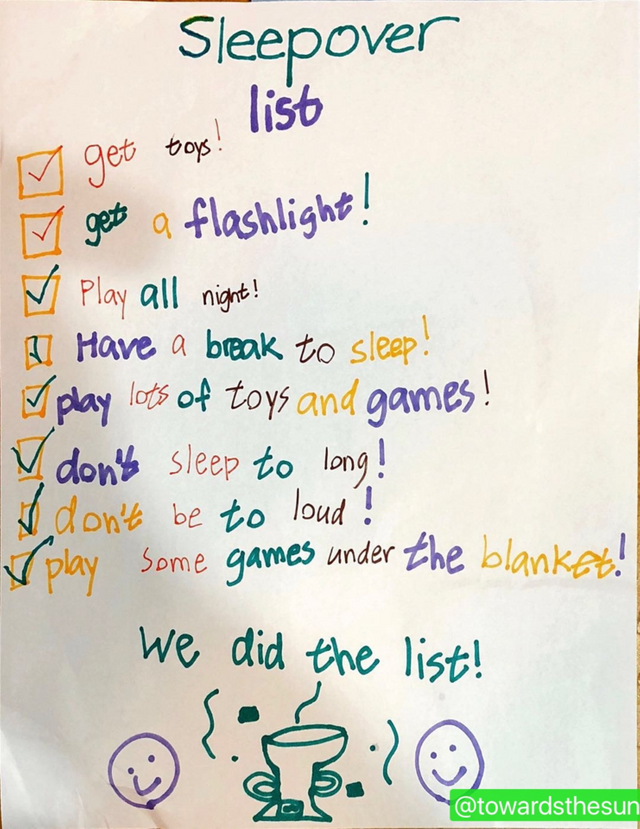 Sleepover
list
get toys!
get a flashlight!
Play all night!
Have a break to sleep!
play lots of toys and games!
don't sleep to long!
don't be to loud!
play some games under the blanket!
We did the list!
@towardsthesun